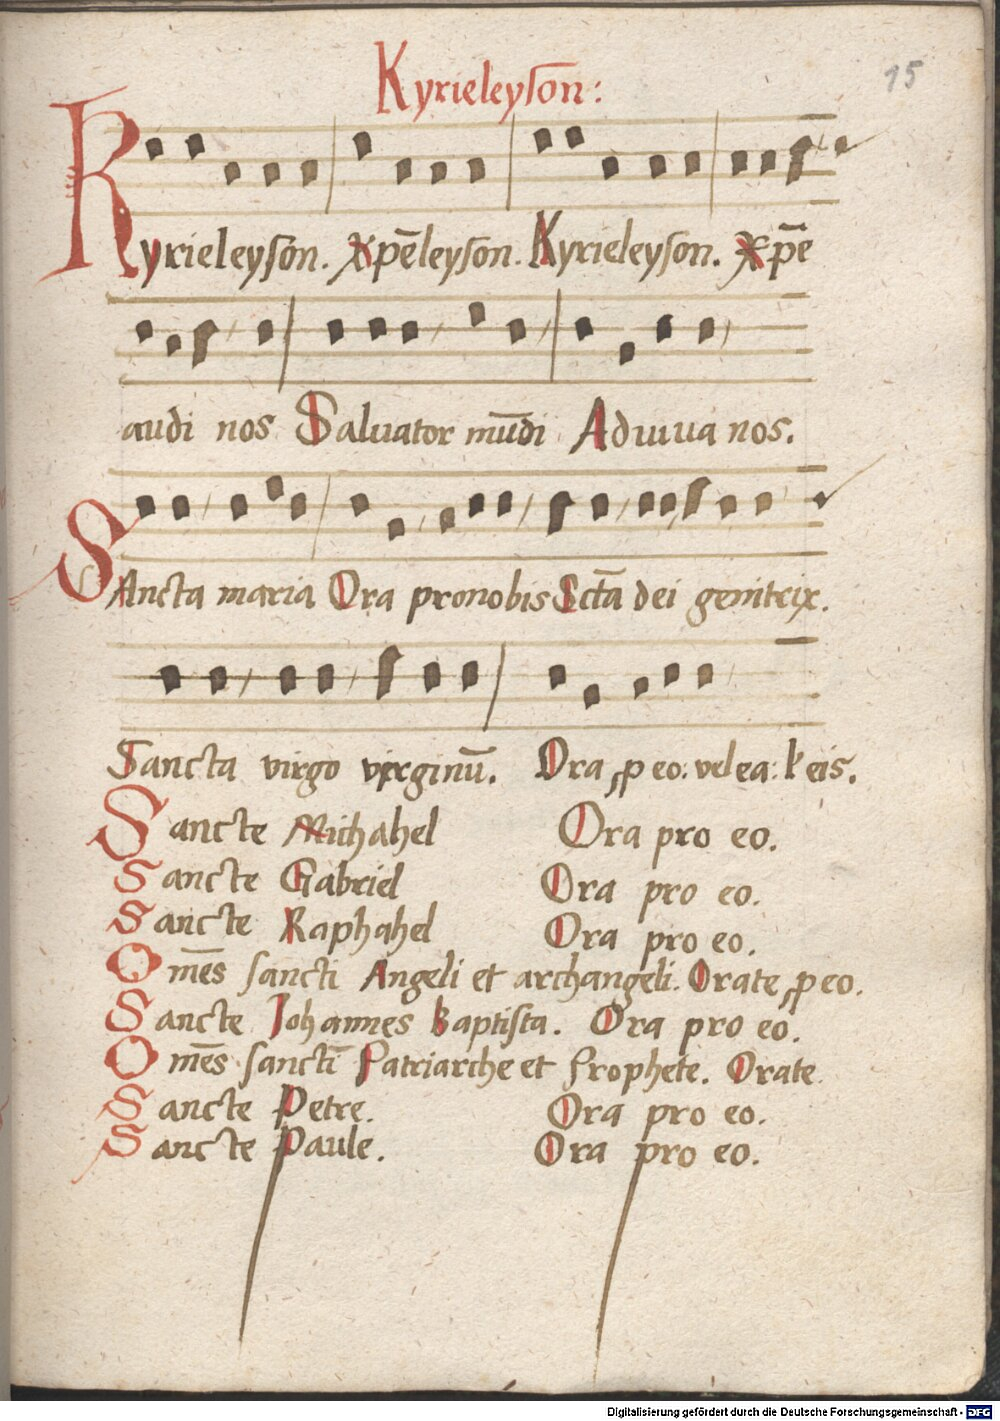 Kyrieleyson:
15
Kyrieleyson. Xp̄eleyson. Kyrieleyson. Xp̄e
audi nos Saluator mūdi Adiuua nos.
SAncta maria Ora pronobis Sctā dei genitrix.
Sancta virgo virginū. Ora ꝓ eo: vel ea: l' eis.
Sancte Michahel Ora pro eo.
Sancte Gabriel Ora pro eo.
Sancte Raphahel Ora pro eo.
Om̄es sancti Angeli et archangeli. Orate ꝓ eo.
Sancte Johannes Baptista. Ora pro eo.
Om̄es sancti Patriarche et Prophete. Orate
Sancte Petre. Ora pro eo.
Sancte Paule. Ora pro eo.
Digitalisierung gefördert durch die Deutsche Forschungsgemeinschaft - DFG